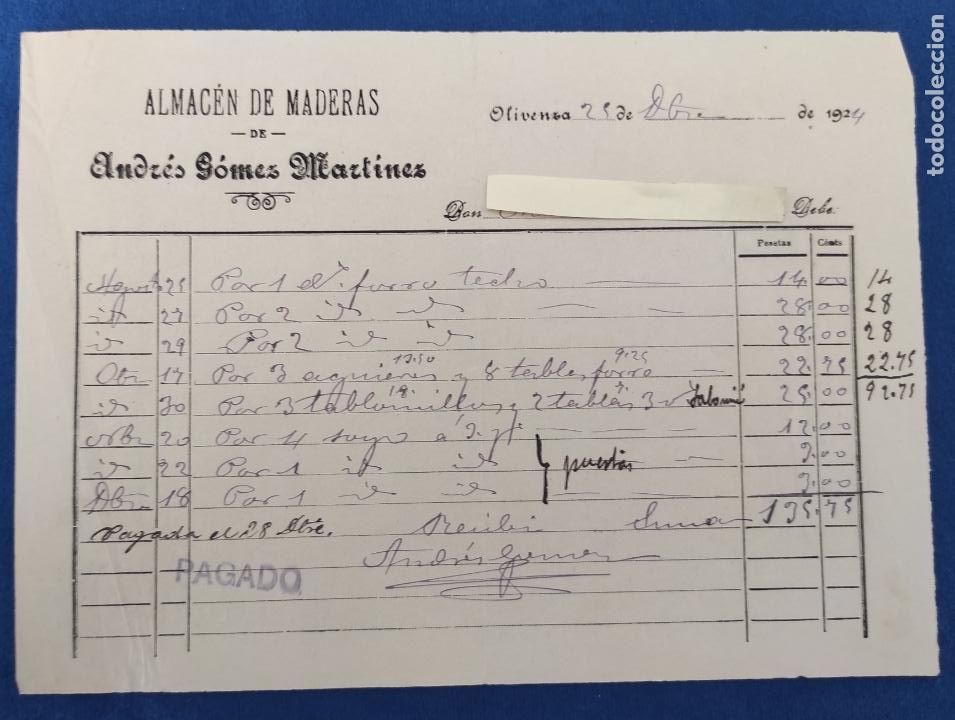 ALMACÉN DE MADERAS
— DE —
Andrés Gómez Martínez
Olivenza 25 de Dbre de 1924
Don Debe:
Pesetas Cénts
25 Por 1 dª forro techo 14.00 14
id 27 Por 2 id id 28.00 28
id 29 Por 2 id id 28.00 28
13.50 9.25
Otb 17 Por 3 y 8 tablas forro 22.75 22.75
18 7
id 30 Por 3 tabloncillos y 2 tablas 3 v 25.00 92.75
Nvbr 20 Por 4 a 3 12.00
id 22 Por 1 id id puestas 3.00
Dbre 18 Por 1 id id 3.00
Pagada el 28 Dbre. Recibí Suma 135.75
Andrés Gómez
PAGADO
todocoleccion